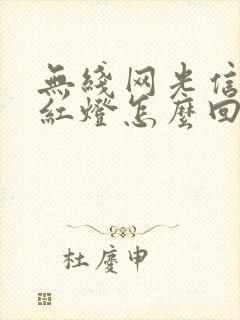 無綫网光信
紅燈怎麽回
杜慶申